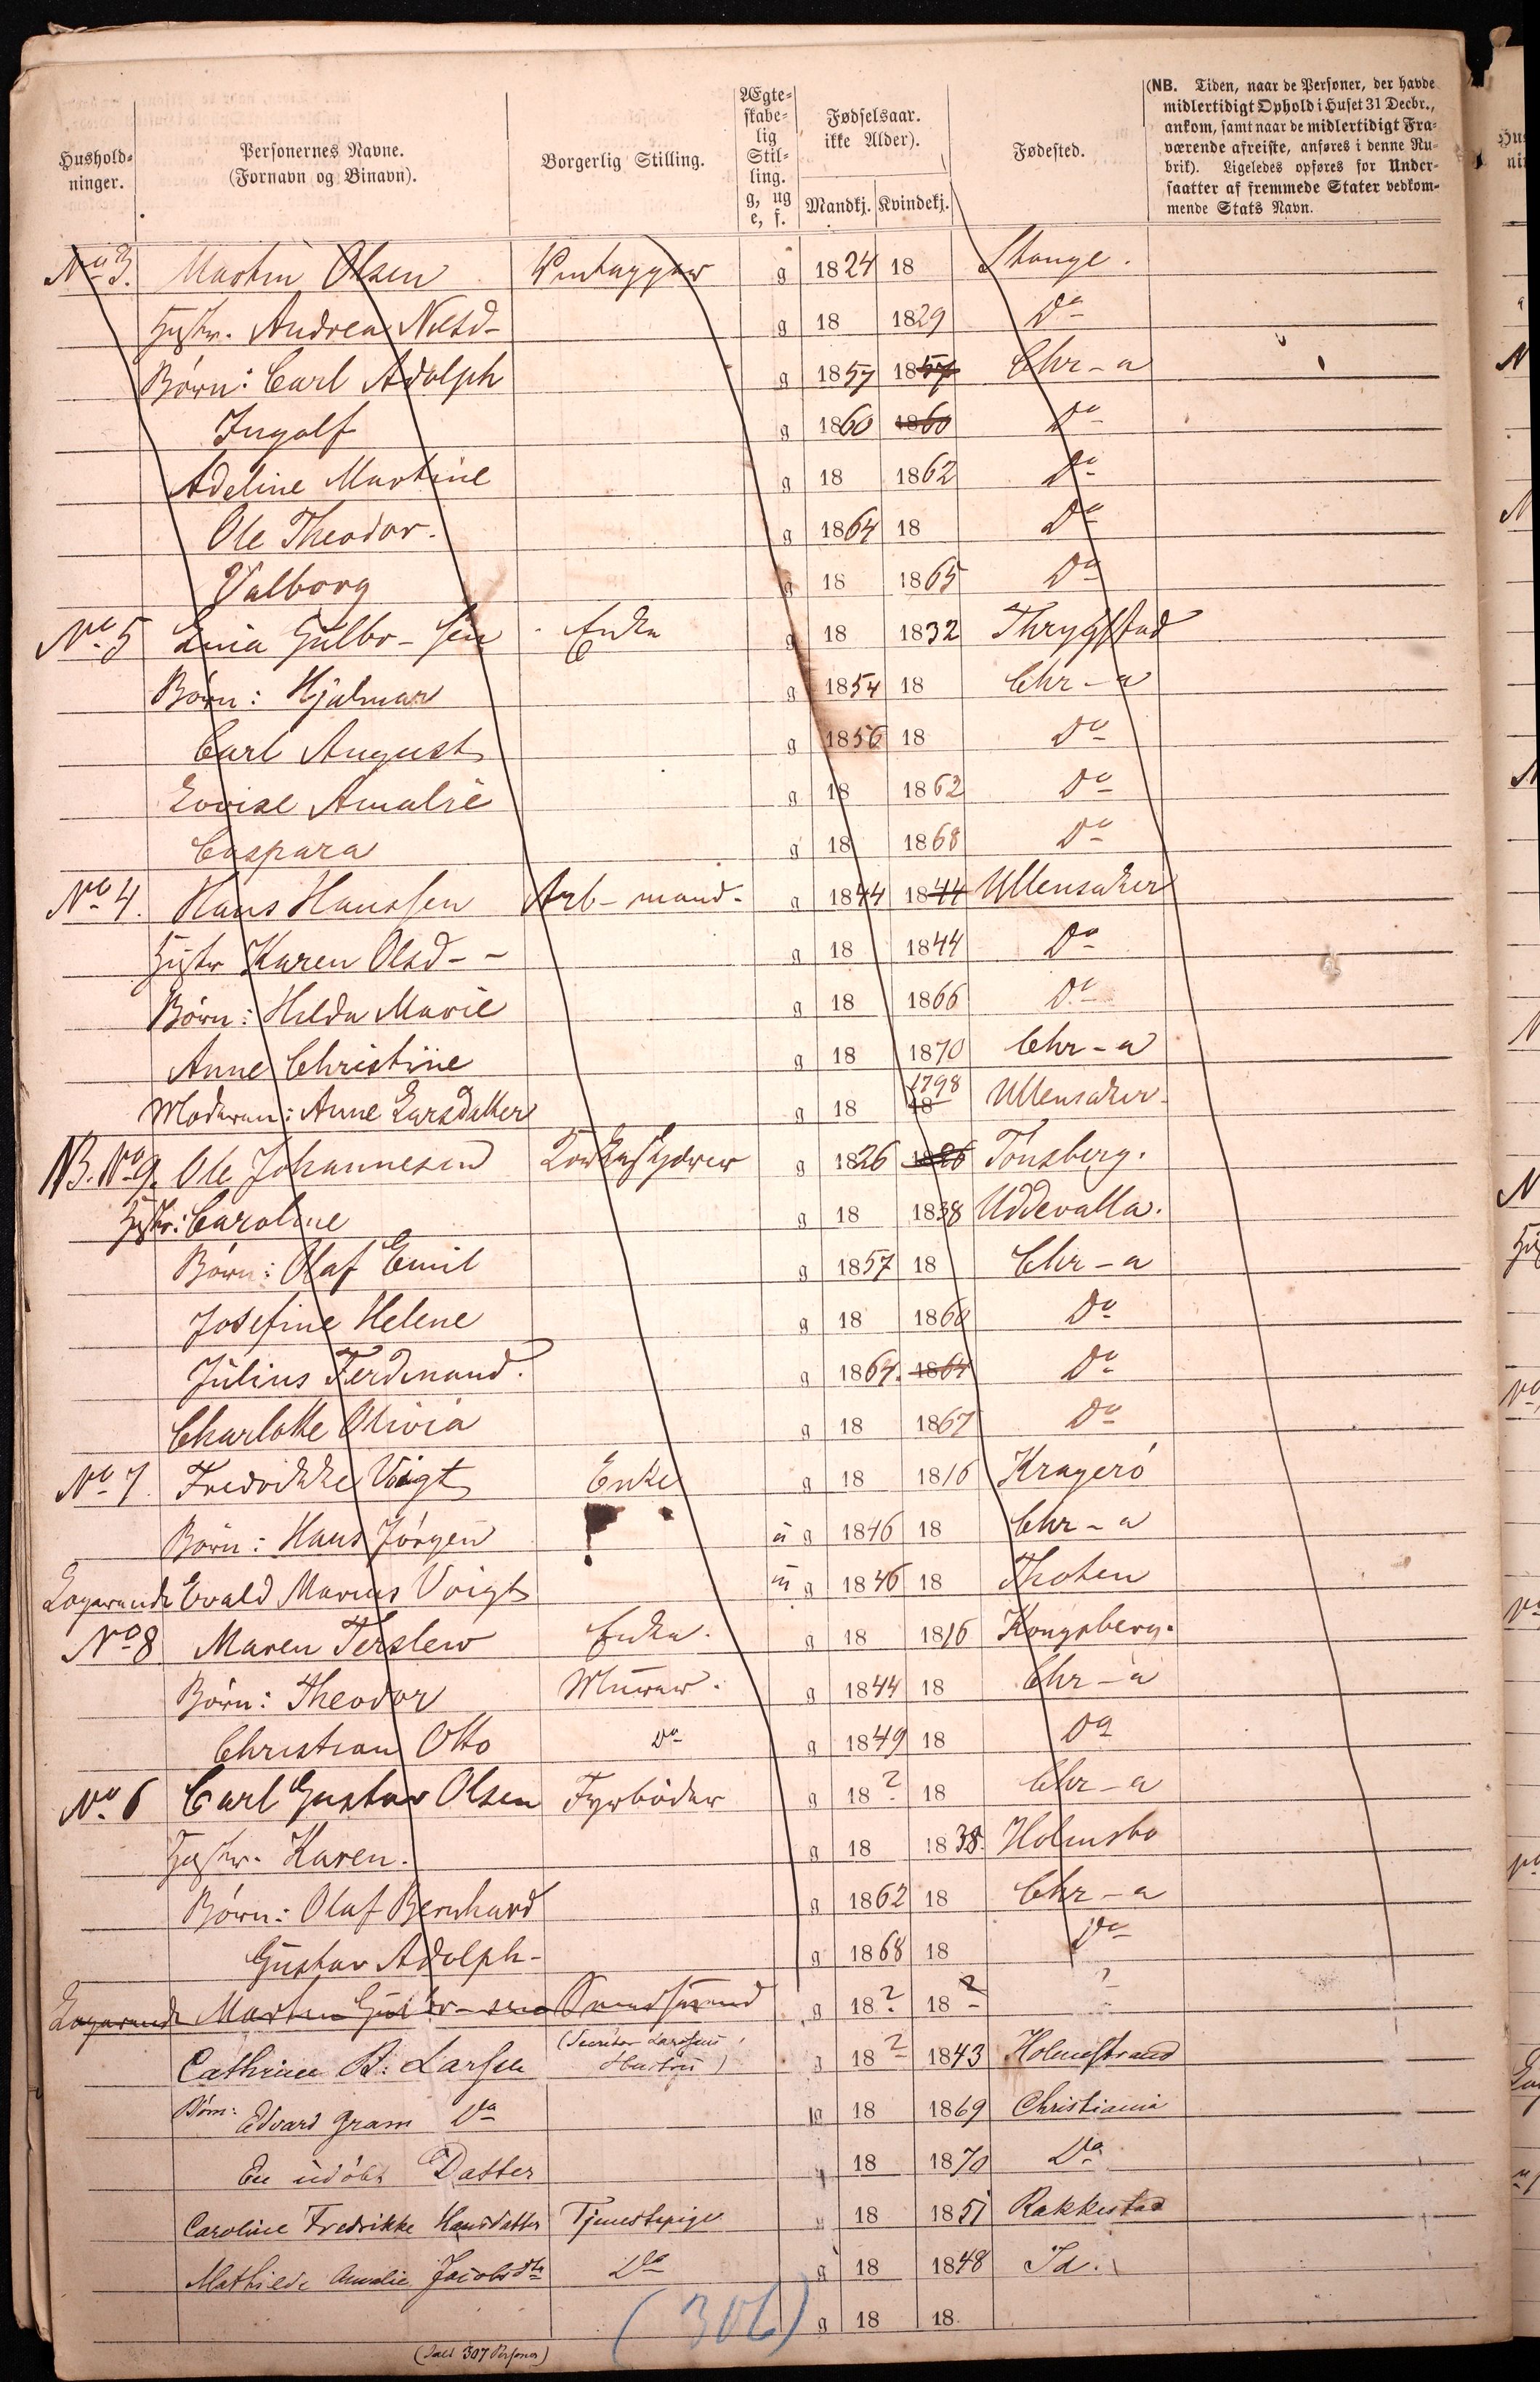 Hushold-
ninger.
Personernes Navne.
(Fornavn og Binavn).
Borgerlig Stilling.
Ægte-
skabe-
lig
Stil-
ling.
g, ug
e, f.
Fødselsaar.
ikke Alder).
Mandkj. Kvindekj.
Fødested.
(NB. Tiden, naar de Personer, der havde
midlertidigt Ophold i Huset 31 Decbr.,
ankom, samt naar de midlertidigt Fra-
værende afreiste, anføres i denne Ru-
brik). Ligeledes opføres for Under-
saatter af fremmede Stater vedkom-
mende Stats Navn.
No 3. Martin Olsen g 1824 18 Stange.
Hustr. Andrea Nilsd- g 18 1829 Do
Børn: Carl Adolph g 1857 1857 Chr-a
Ingolf g 1860 1860 Do
Adeline Martine g 18 1862 Do
Ole Theodor. g 1864 18 Do
Valborg g 18 1865 Do
No 5 Gulbr-sen Enke g 18 1832 Thrygstad
Børn: Hjalmar g 1854 18 Chr-a
Carl August g 1856 18 Do
Lovise Amalie g 18 1862 Do
Caspara g 18 1868 Do
No 4. Hans Hanssen Arb-mand. g 1844 1844 Ullensaker
Hustr Karen Olsd-- g 18 1844 Do
Børn: Hilda Marie g 18 1866 Do
Anne Christine g 18 1870 Chr-a
Moderen: Anne Larsdatter g 18 1798 18 Ullensaker
NB. No 9. Ole Johannesen g 1826 1826 Tönsberg.
Hustr: Caroline g 18 1838 Uddevalla.
Børn: Olaf Emil g 1857 18 Chr-a
Josefine Helene g 18 1860 Do
Julius Ferdinand. g 1864. 1864 Do
Charlotte Olivia g 18 1867 Do
No 7. Fredrikke Voigt Enke g 18 1816 Kragerö
Børn: Hans Jörgen u g 1846 18 Chr-a
Logerende Evald Marius Voigt u g 1846 18 Thoten
No 8 Maren Terslew Enke. g 18 1816 Kongsberg.
Børn: Theodor Murer. g 1844 18 Chr-a
Christian Otto Do g 1849 18 Do
No 6 Carl Gustav Olsen Fyrböder g 18? 18 Chr-a
Hustr. Karen. g 18 1838. Holmsbo
Børn: Olaf Bernhard g 1862 18 Chr-a
Gustav Adolph- g 1868 18 Do
Logerende Martin Gulbr-sen g 18? 18? ?
Cathrine B: Larsen (Secretær Larsens Hustru) g 18? 1843 Holmestrand
Børn: Edvard Gram Do g 18 1869 Christiania
En udöbt Datter g 18 1870 Do
Caroline Fredrikke Hansdatter Tjenestepige g 18 1851 Rakkestad
Mathilde Amalie Jacobsdtr Do g 18 1848 Id.
g 18 18
(306)
(Ialt 307 Personer)